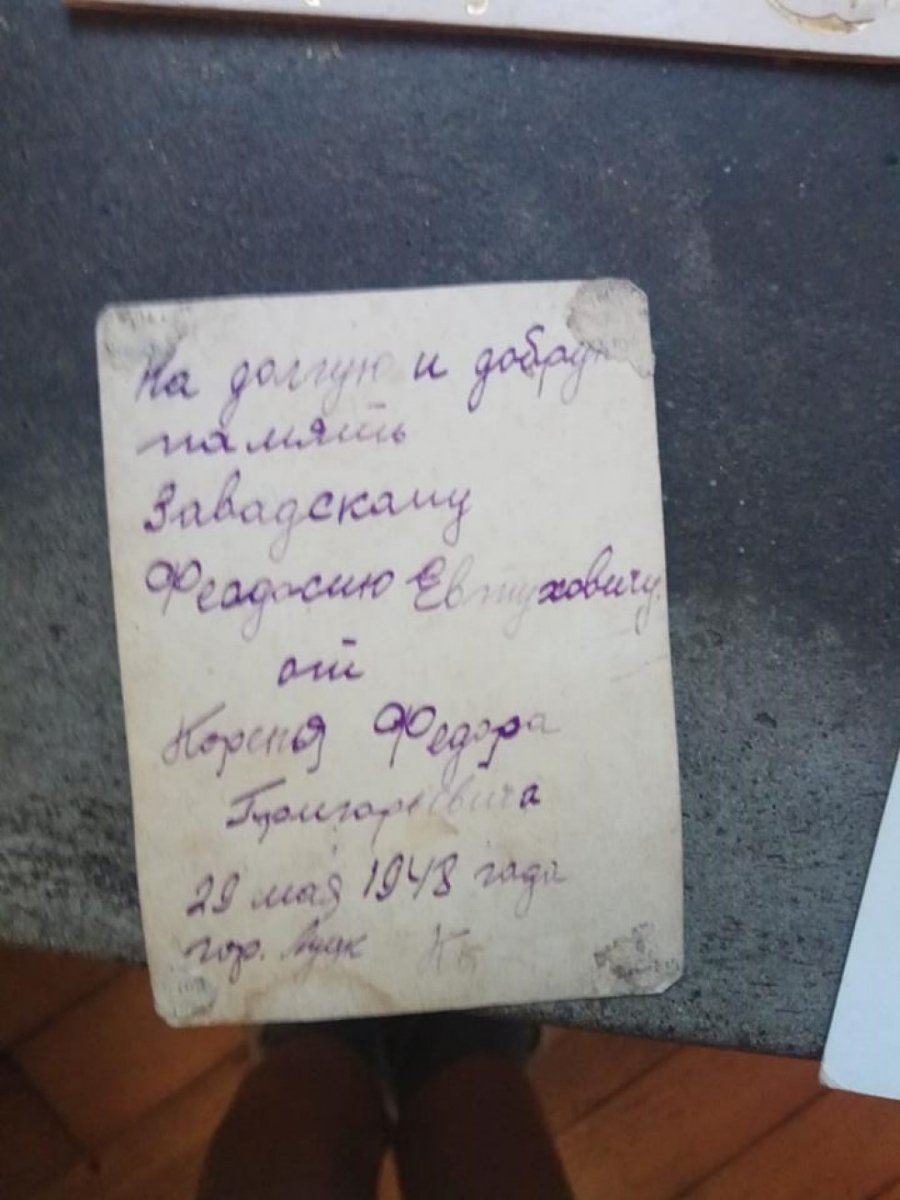 На долгую и добрую
память
Завадскаму
Феадосию Евтуховичу.
от
Кореня Федора
29 мая 1948 года
гор. Луцк